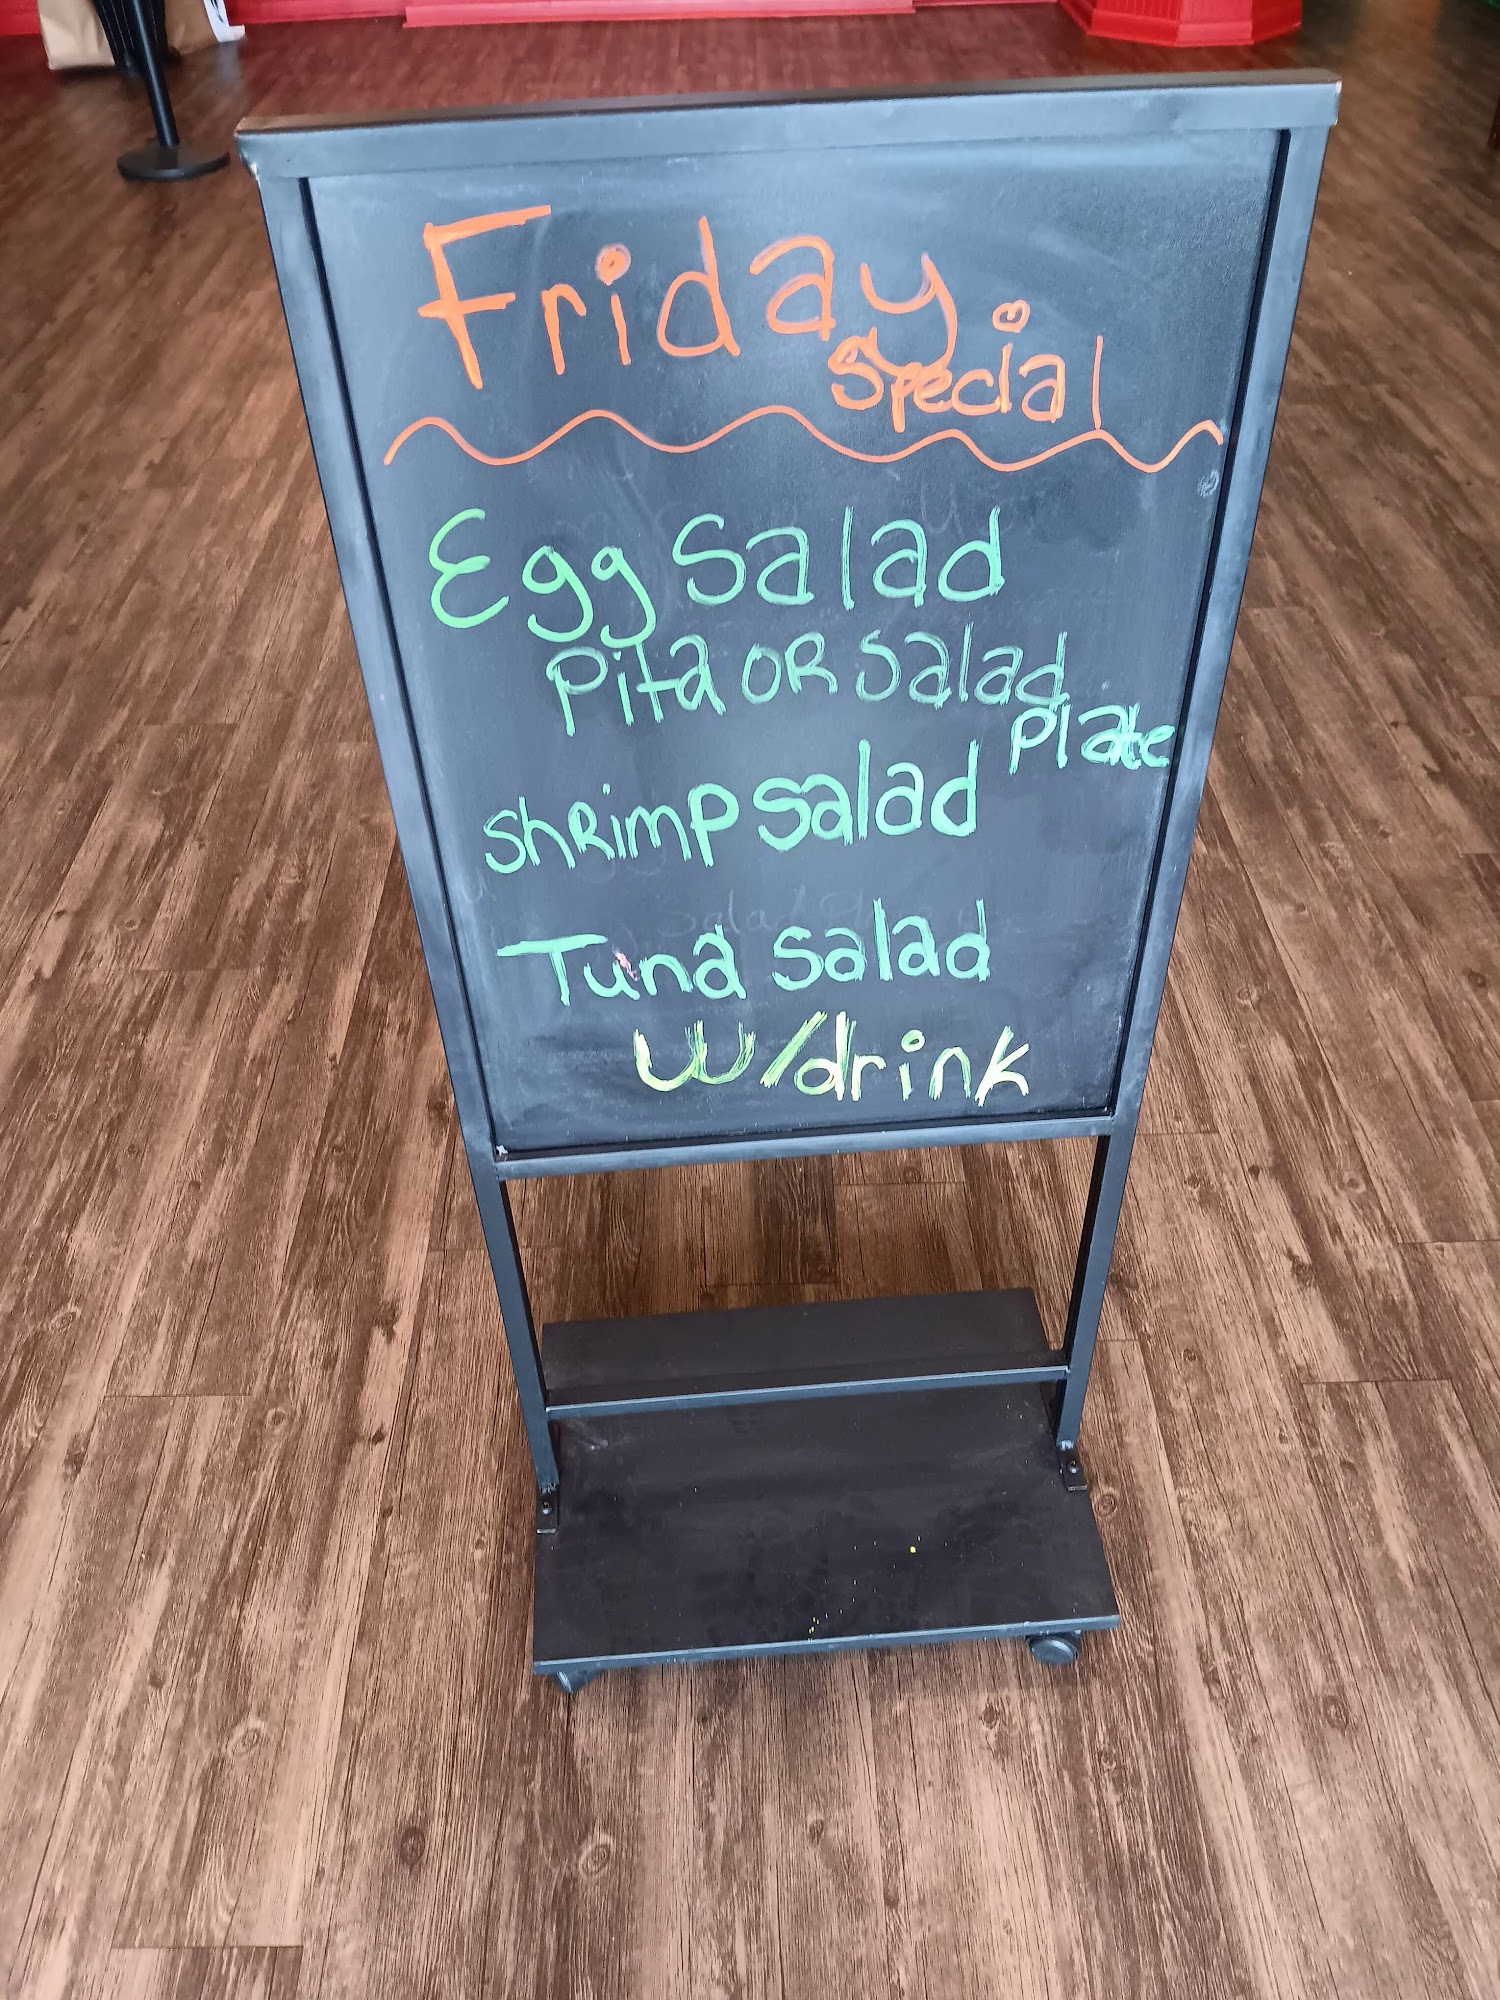 Friday
Special
Egg Salad
Pita OR Salad
Plate
ShRimp Salad
Tuna Salad
w/drink